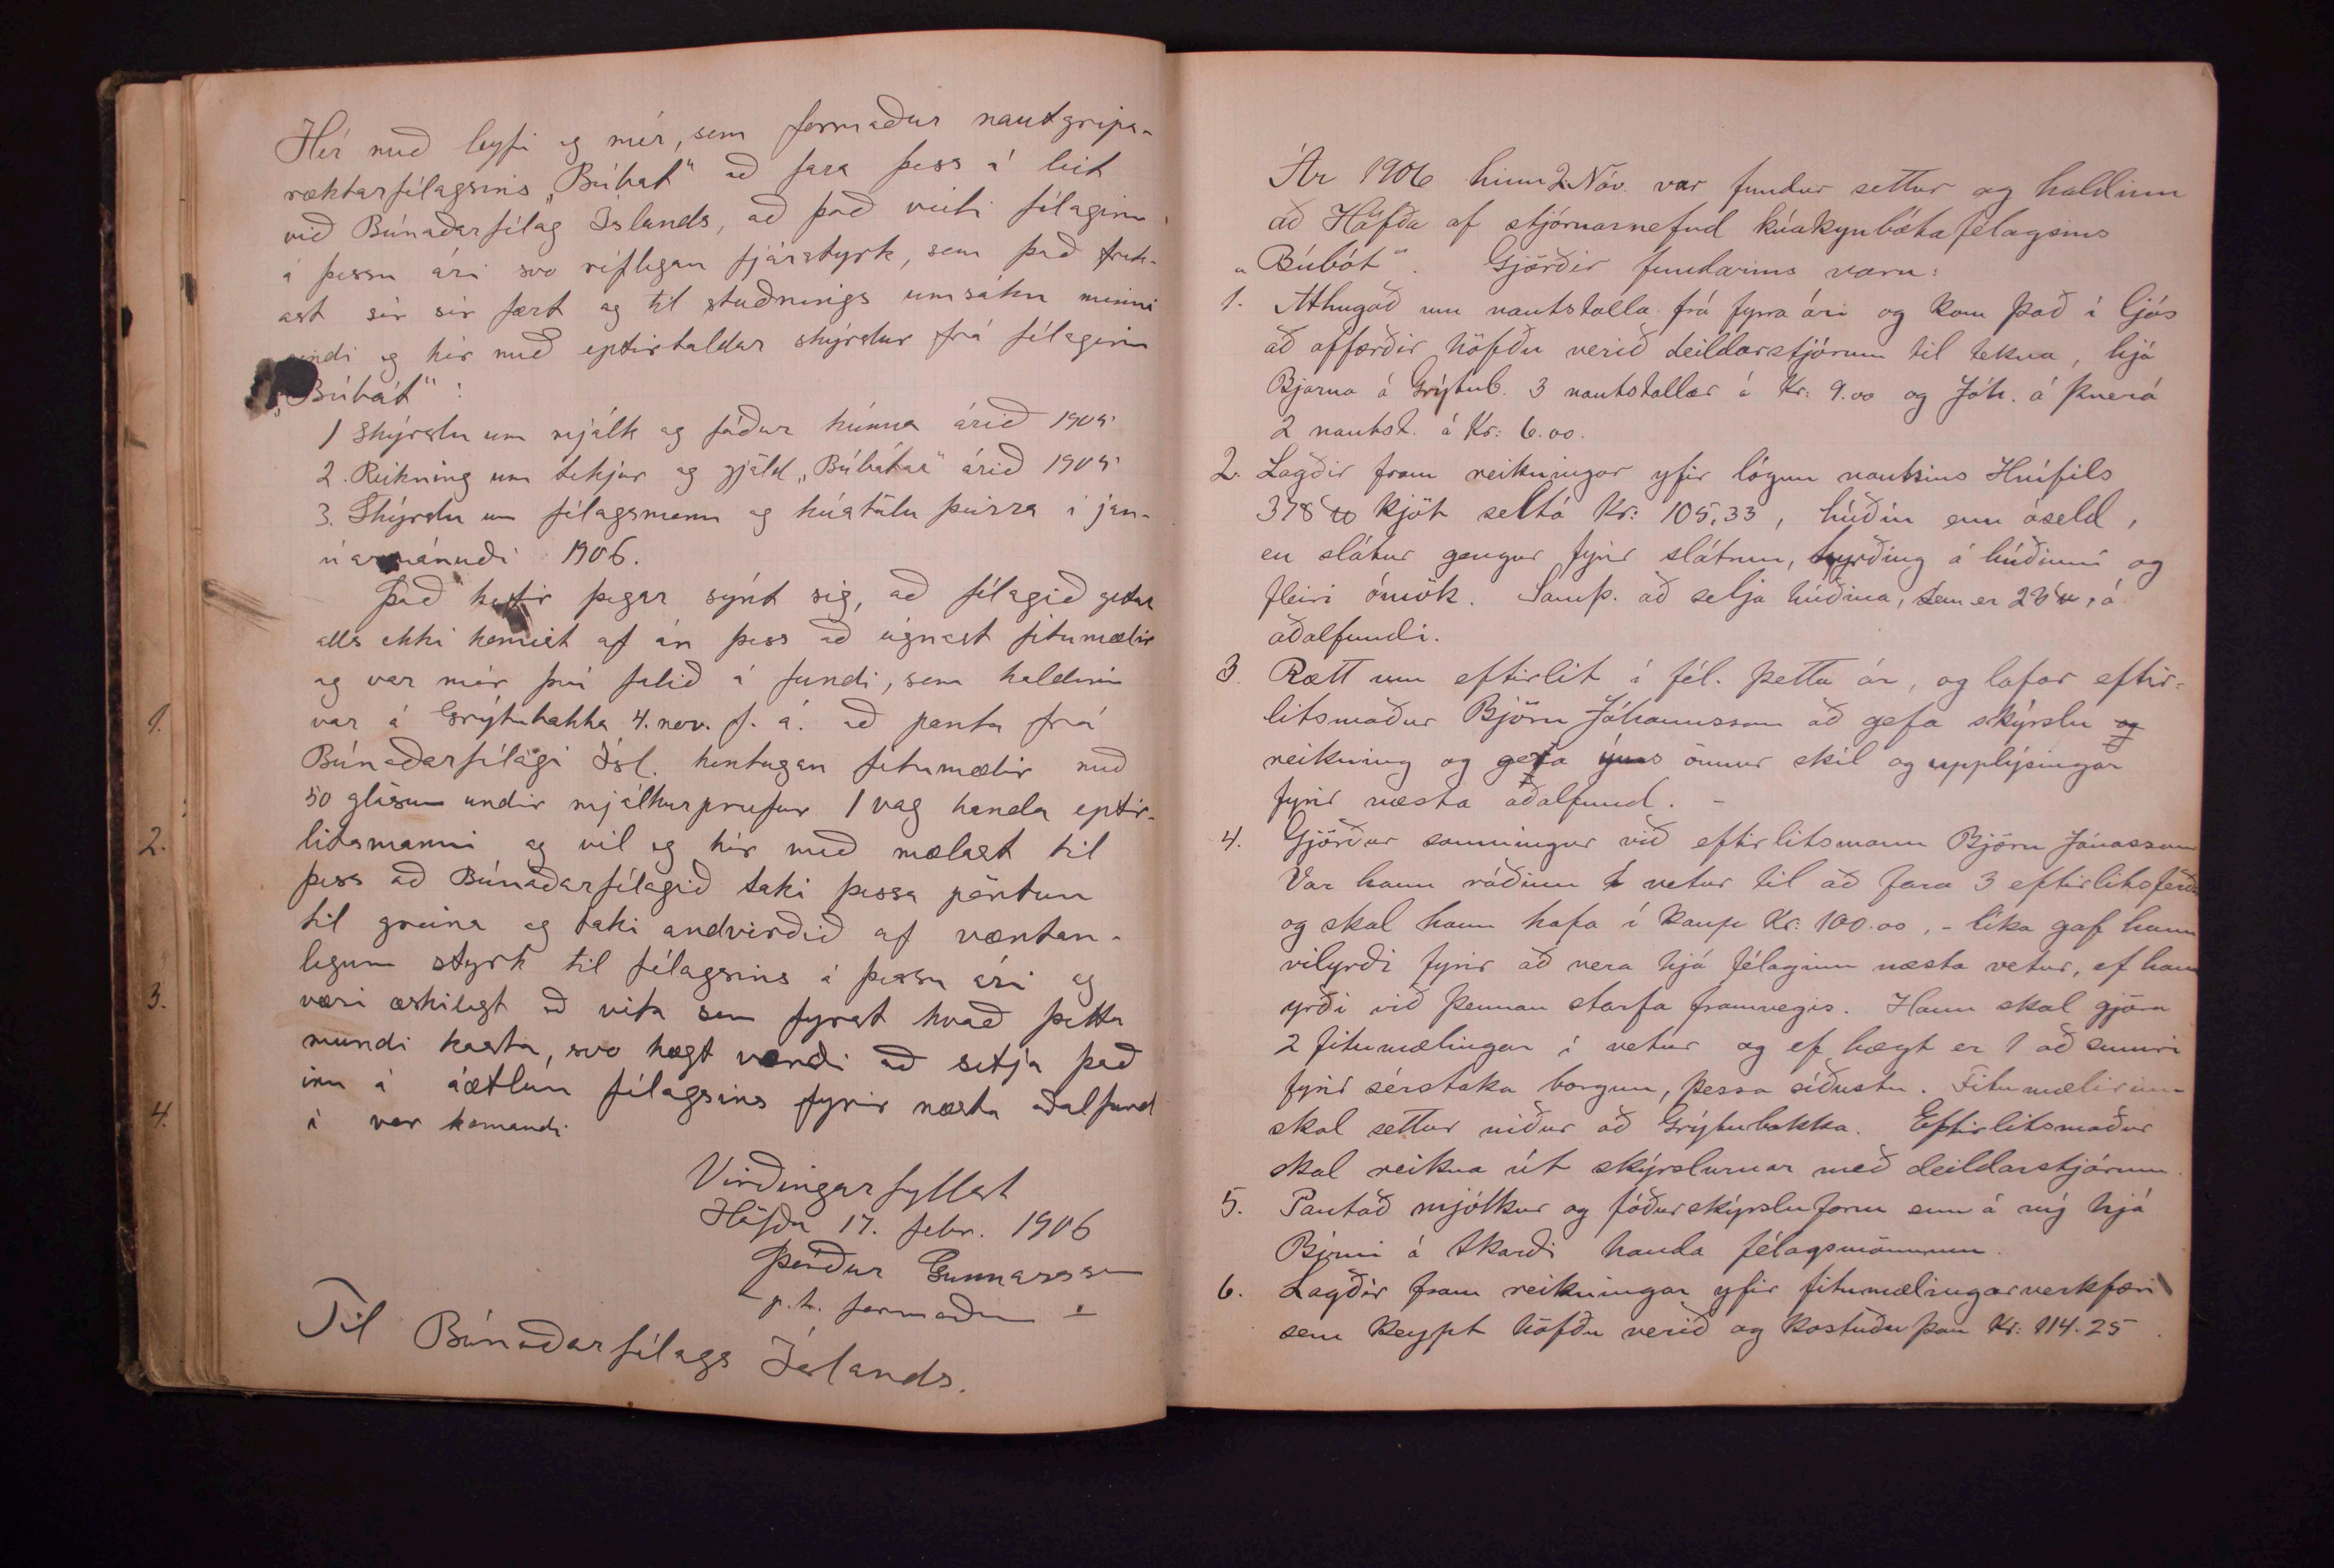 Hér með leyfi eg mér, sem formaður nautgripa-
ræktarfélagsins „Búbót" að fara þess á leit
við Búnaðarfélag Íslands, að það veiti félaginu
á þessu ári svo ríflegan fjárstyrk, sem það
sér fært og til stuðnings umsókn minni
sendi eg hér með eptirtaldar skýrslur frá félaginu
„Búbót":
1 Skýrslu um mjólk og fóður kúnna árið 1905
2. Reikning um tekjur og gjöld „Búbótar" árið 1905
3. Skýrslu um félagsmenn og kúatölu þeirra í jan-
úarmánuði 1906.
Það hefir þegar sýnt sig, að félagið getur
alls ekki komist af án þess að eignast fitumælir
og var mér því falið á fundi, sem haldinn
var á Grýtubakka 4. nov. f. á. að panta frá
Búnaðarfélagi Ísl. hentugan fitumælir með
50 glösum undir mjólkurprufur 1 vag handa eptir-
litsmanni og vil eg hér með mælast til
þess að Búnaðarfélagið taki þessa pöntun
til greina og taki andvirðið af væntan-
legum styrk til félagsins á þessu ári og
væri æskilegt að vita sem fyrst hvað þetta
mundi kosta, svo hægt verði að setja það
inn á áætlun félagsins fyrir næsta aðalfund
á vor komandi
Virðingarfyllst
Höfða 17. febr. 1906
Þórður Gunnarsson
p.t. formaður
Til Búnaðarfélags Íslands.
1.
2.
3.
4.
Ár 1906 hinn 2. Nóv. var fundur settur og haldinn
að Höfða af stjórnarnefnd kúakynbótafélagsins
„Búbót". Gjörðir fundarins voru:
1. Athugað um nautstolla frá fyrra ári og kom það í ljós
að offærðir höfðu verið deildarstjórum til tekna, hjá
Bjarna á Grýtub. 3 nautstollar á Kr: 9.00 og Jóh. á Þverá
2 nautst. á Kr: 6.00.
2. Lagðir fram reikningar yfir lógun nautsins Hnífils
378 ℔ kjöt selt á Kr: 105,33, húðin enn óseld,
en slátur gengur fyrir slátrun, hyrðing á húðinni og
fleiri ómök. Samþ. að selja húðina, sem er 26 ℔, á
aðalfundi.
3. Rætt um eftirlit í fél. þetta ár, og lofar eftir-
litsmaður Björn Jóhannsson að gefa skýrslu og
reikning og gefa ýms önnur skil og upplýsingar
fyrir næsta aðalfund. -
4. Gjörður samningur við eftirlitsmann Björn Jónasson
Var hann ráðinn í vetur til að fara 3 eftirlitsferðir
og skal hann hafa í kaup Kr: 100.00, - líka gaf hann
vilyrði fyrir að vera hjá félaginu næsta vetur, ef hann
yrði við þennan starfa framvegis. Hann skal gjöra
2 fitumælingar í vetur og ef hægt er 1 að sumri
fyrir sérstaka borgun, þessa síðustu. Fitumælirinn
skal settur niður að Grýtubakka. Eftirlitsmaður
skal reikna út skýrslurnar með deildarstjórum.
5. Pantað mjólkur og fóðurskýrsluform enn á ný hjá
Birni á Skarði handa félagsmönnum.
6. Lagðir fram reikningar yfir fitumælingarverkfæri
sem keypt höfðu verið og kostuðu þau Kr: 114.25.